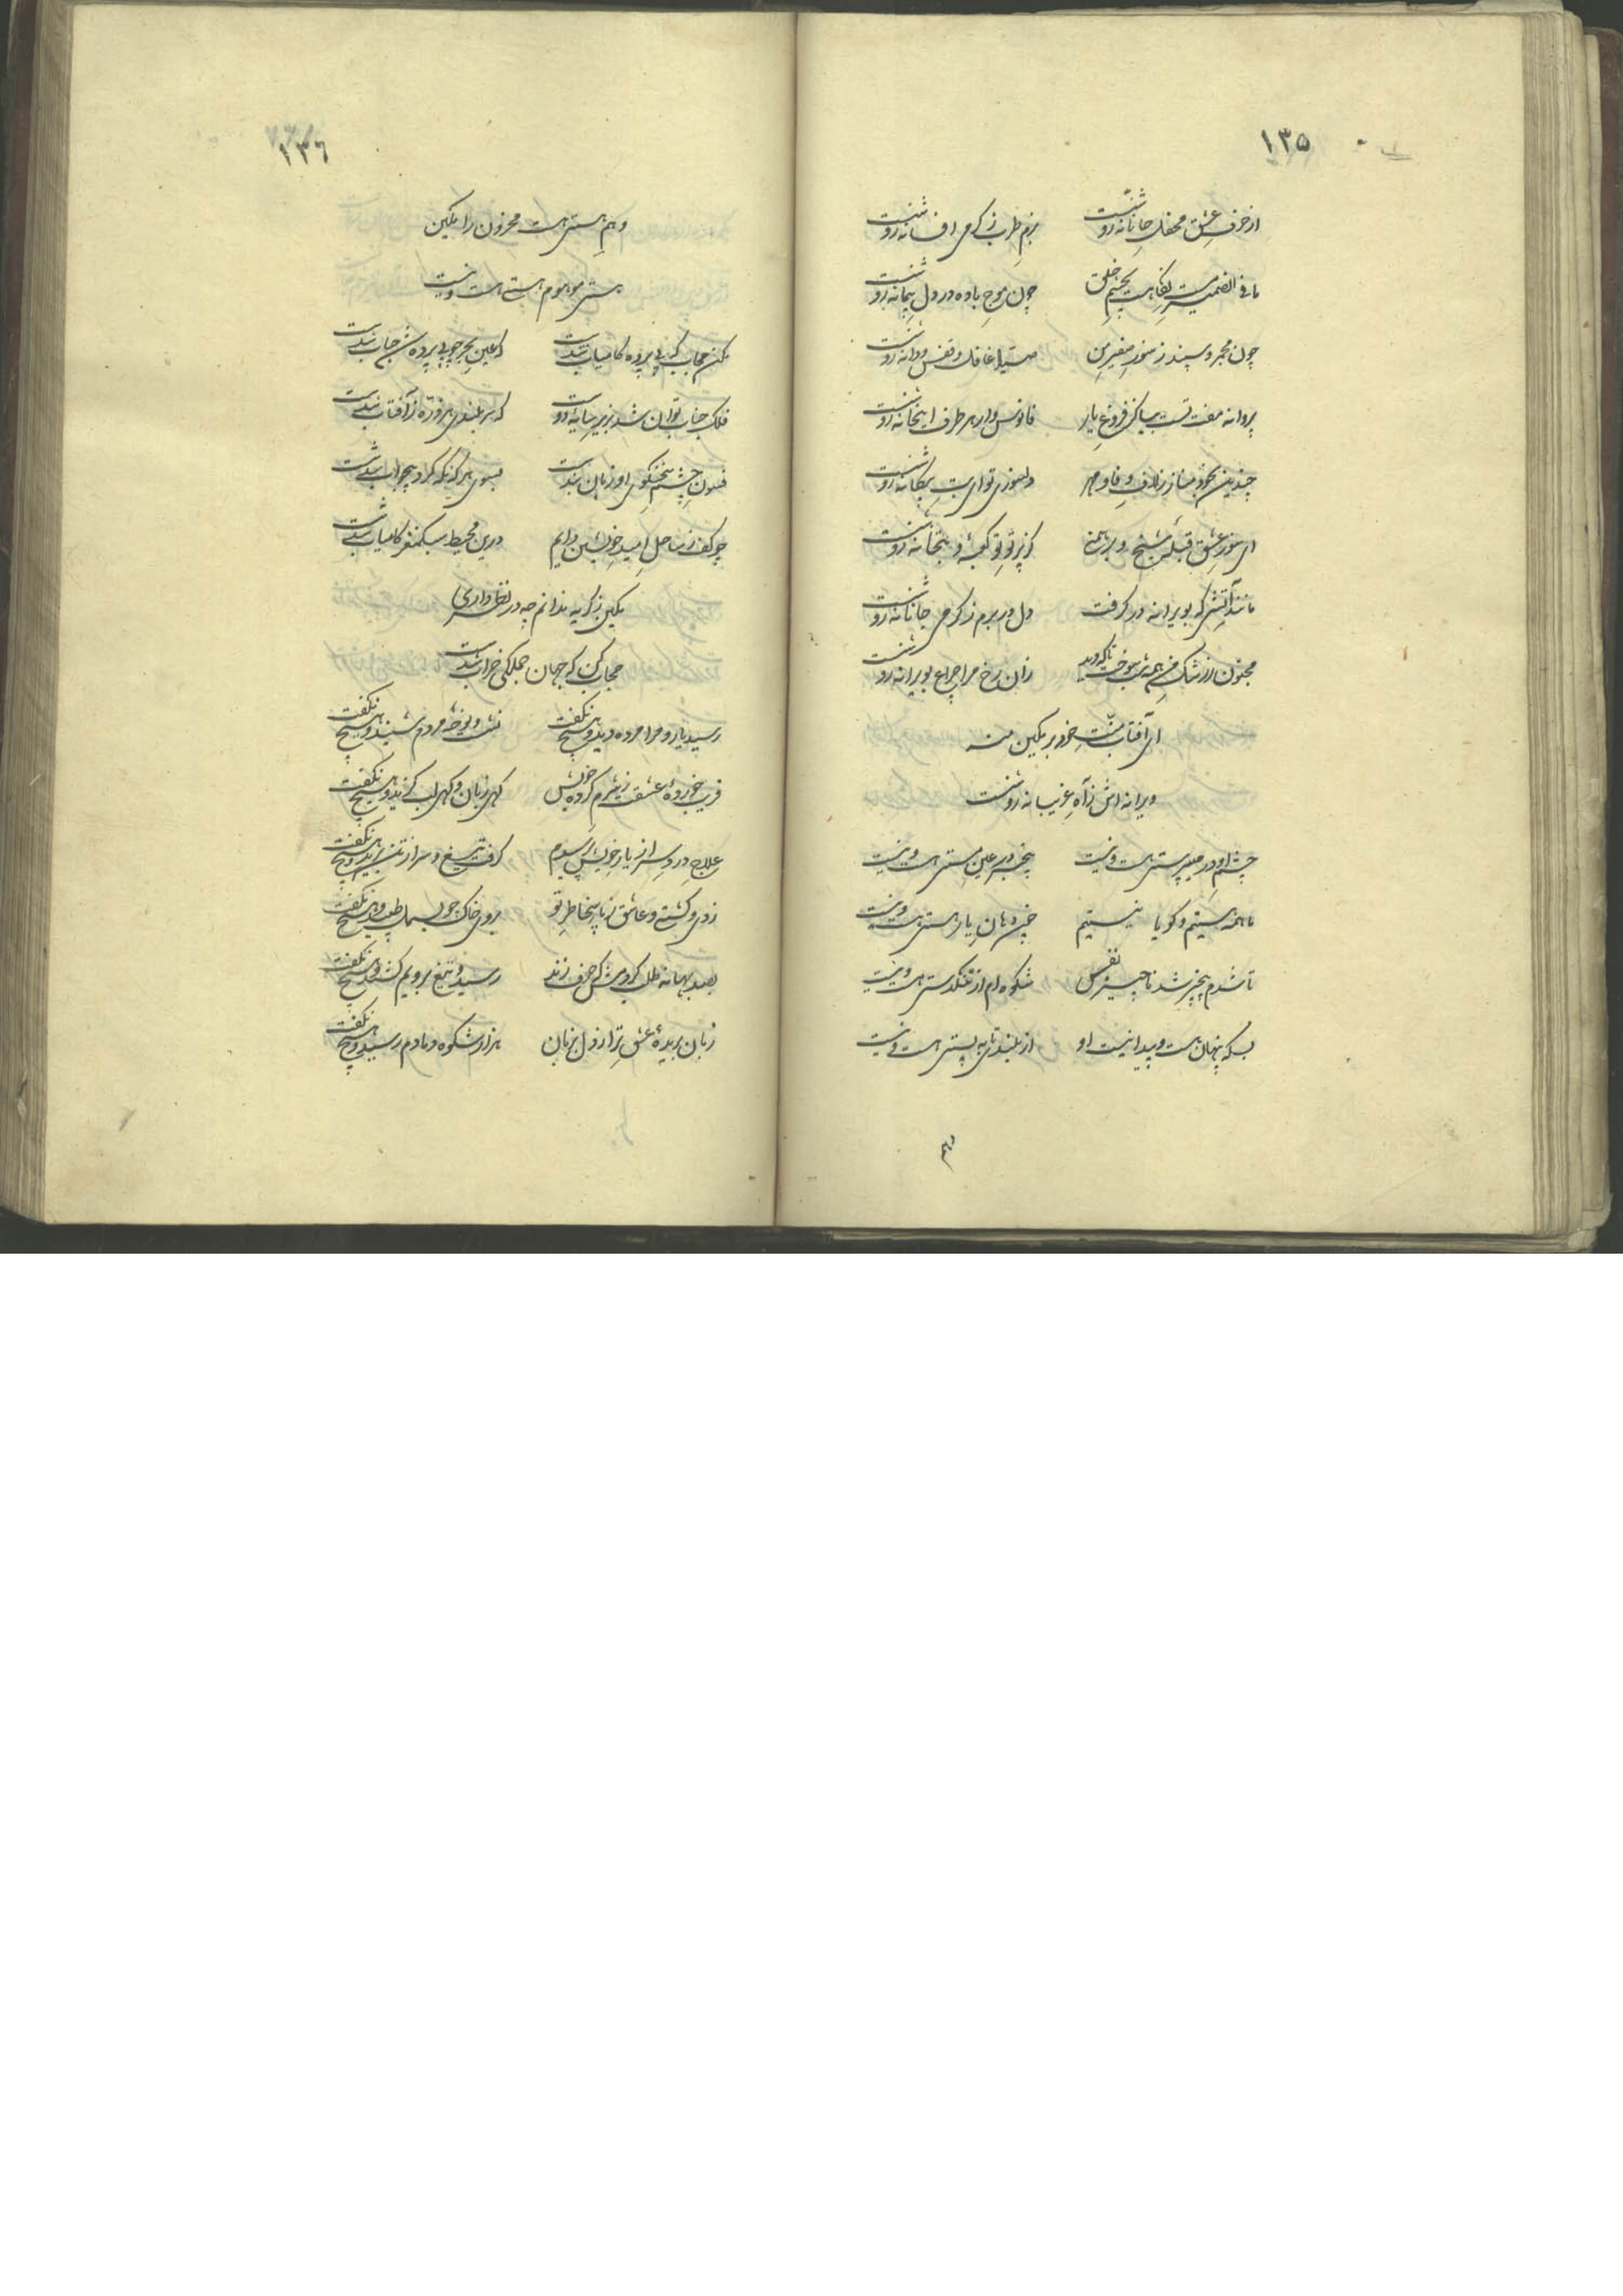 ۱۳۵
از حرف عشق محفل جانانه روشنست بزم طرب ز گرمی افسانه روشنست
ما فی الضمیر مست نگاهت بچشم خلق چون موج باده در دل پیمانه روشنست
چون مجمر و سپند ز سوز صفیر من صیاد غافل و قفس و دانه روشنست
پروانه مفت تست بیباکی فروغ یار فانوس وار هر طرف این خانه روشنست
چندین بخود مناز ز لاف وفا و مهر دلسوزی تو ای بت بیگانه روشنست
ای سوز عشق قبله شیخ و برهمنی کز پرتو تو کعبه و بتخانه روشنست
مانند آتشی که بویرانه در گرفت دل در برم ز گرمی جانانه روشنست
مجنون از رشک من همه شب سوخت تا که دید زان رخ مرا چراغ بویرانه روشنست
ای آفتاب منت خود بر یکین منه
ویرانه اش ز آه غریبانه روشنست
چشم او در می‌پرستی هست و نیست بیخبر در عین مستی هست و نیست
ما همه هستیم و گویا نیستیم چون دهان یار هستی هست و نیست
تا شدم بیخبر شد ناچیز نفس شکوه ام از تنگدستی هست و نیست
بسکه پنهان هست و پیدا نیست او از بلندی تا به پستی هست و نیست
وهم
۱۳۶
وهم هستی هست محزون را یکین
هستی موهوم هستی هست و نیست
مکن حجاب که بی پرده کامیاب شدست که عین بحر چو بی پرده شد حباب شدست
فلک جناب توان شد بزیر سایه دوست که سربلندی هر ذره ز آفتاب شدست
فسون چشم سخنگوی او زبان بندست بسوی هر که نگه کرد بیجواب شدست
چو کف ز ساحل امید خویشتن دایم درین محیط سبکمغز کامیاب شدست
یکین ز گریه ندانم چه در نظر داری
حجاب کن که جهان جملگی خراب شدست
رسید یار و مرا مرده دید و هیچ نگفت نشست و نوحه مردم شنید و هیچ نگفت
فریب خورده عشقت ز شرم کرده خویش گهی زبان و گهی لب گزید و هیچ نگفت
علاج درد سر از یار خویش پرسیدم گرفت تیغ و سر از تن برید و هیچ نگفت
زدی و کشته و عاشق ز پاس خاطر تو بروی خاک چو بسمل طپید و هیچ نگفت
بصد بهانه طلب کردمش که حرف زند رسید و تیغ برویم کشید و هیچ نگفت
زبان بریده عشق ترا ز دل بزبان هزار شکوه دمادم رسید و هیچ نگفت